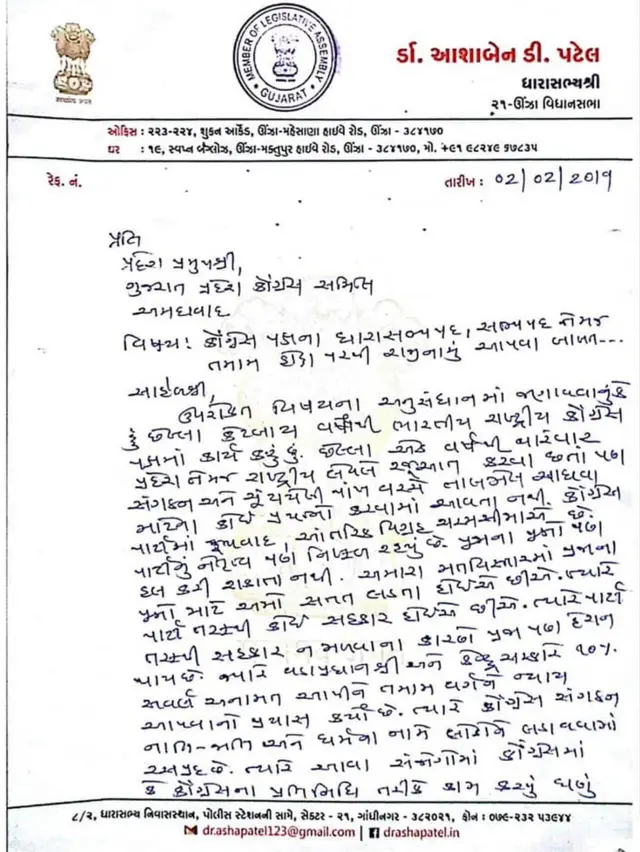 MEMBER OF LEGISLATIVE ASSEMBLY
GUJARAT
ડૉ. આશાબેન ડી. પટેલ
ધારાસભ્યશ્રી
૨૧-ઊંઝા વિધાનસભા
ઓફિસ : ૨૨૩-૨૨૪, શુકન આર્કેડ, ઊંઝા-મહેસાણા હાઈવે રોડ, ઊંઝા - ૩૮૪૧૭૦
ઘર : ૧૯, સ્વપ્ન બંગ્લોઝ, ઊંઝા-મક્તુપુર હાઈવે રોડ, ઊંઝા - ૩૮૪૧૭૦, મો. +૯૧ ૯૮૨૪૯ ૬૭૮૩૫
રેફ. નં.
તારીખ : 02/02/2019
પ્રતિ
પ્રદેશ પ્રમુખશ્રી,
ગુજરાત પ્રદેશ કોંગ્રેસ સમિતિ
અમદાવાદ
વિષય: કોંગ્રેસ પક્ષના ધારાસભ્યપદ, સભ્યપદ તેમજ
તમામ હોદ્દા પરથી રાજીનામું આપવા બાબત...
સાહેબશ્રી,
ઉપરોક્ત વિષયના અનુસંધાનમાં જણાવવાનું કે
હું છેલ્લા કેટલાય વર્ષોથી ભારતીય રાષ્ટ્રીય કોંગ્રેસ
પક્ષમાં કાર્ય કરું છું. છેલ્લા એક વર્ષથી વારંવાર
પ્રદેશ તેમજ રાષ્ટ્રીય લેવલે રજૂઆત કરવા છતાં પણ
સંગઠન અને ચૂંટાયેલી પાંખ વચ્ચે તાલમેલ સાધવા
માટેના કોઈ પ્રયત્નો કરવામાં આવતા નથી. કોંગ્રેસ
પાર્ટીમાં જૂથવાદ, આંતરિક વિગ્રહ ચરમસીમાએ છે.
પાર્ટીનું નેતૃત્વ પણ નિષ્ફળ રહ્યું છે. પ્રજાના પ્રશ્નો પણ
હલ કરી શકાતા નથી. અમારા મતવિસ્તારમાં પ્રજાના
પ્રશ્નો માટે અમો સતત લડતા હોઈએ છીએ. ત્યારે
પાર્ટી તરફથી કોઈ સહકાર હોઈએ છીએ. ત્યારે પાર્ટી
તરફથી સહકાર ન મળવાના કારણે પ્રજા પણ હેરાન
થાય છે. જ્યારે વડાપ્રધાનશ્રી અને કેન્દ્ર સરકારે ૧૦%
સવર્ણ અનામત આપીને તમામ વર્ગને ન્યાય
આપવાનો પ્રયાસ કર્યો છે. ત્યારે કોંગ્રેસ સંગઠન
જાતિ-જાતિ અને ધર્મના નામે લોકોને લડાવવામાં
વ્યસ્ત છે. ત્યારે આવા સંજોગોમાં કોંગ્રેસમાં
કે કોંગ્રેસના પ્રતિનિધિ તરીકે કામ કરવું ઘણું
૮/૨, ધારાસભ્ય નિવાસસ્થાન, પોલીસ સ્ટેશનની સામે, સેક્ટર - ૨૧, ગાંધીનગર - ૩૮૨૦૨૧, ફોન : ૦૭૯-૨૩૨ ૫૩૯૪૪
dr.ashapatel123@gmail.com | drashapatel.in